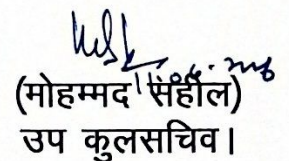 (मोहम्मद सहील)
उप कुलसचिव।